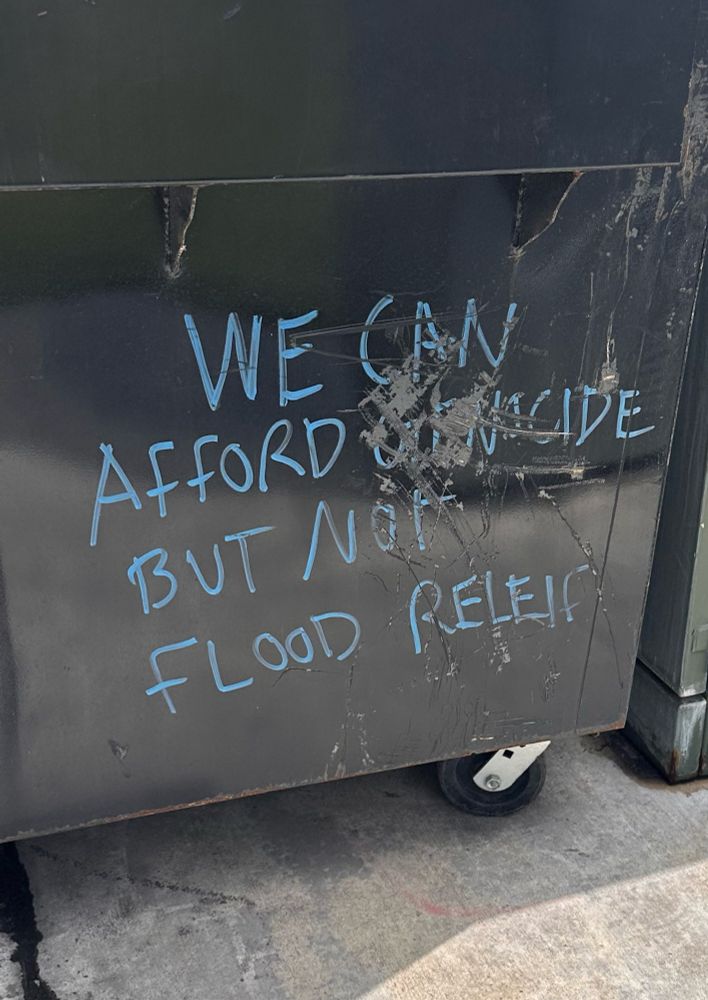 WE CAN
AFFORD GENICIDE
BUT NOT
FLOOD RELEIF